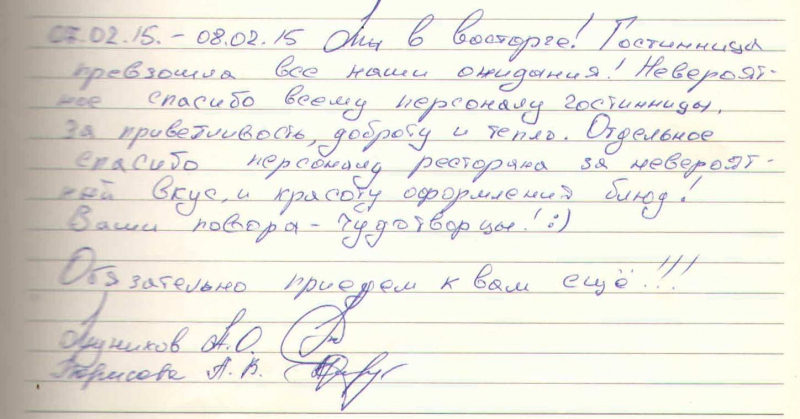 07.02.15. - 08.02.15 Мы в восторге! Гостинница
превзошла все наши ожидания! Невероят-
ное спасибо всему персоналу гостинницы,
за приветливость, доброту и тепло. Отдельное
спасибо персоналу ресторана за невероят-
ный вкус, и красоту оформления блюд!
Ваши повора - Чудотворцы! :)
Обязательно приедем к вам ещё!!!
А.О.
Борисова А.В.